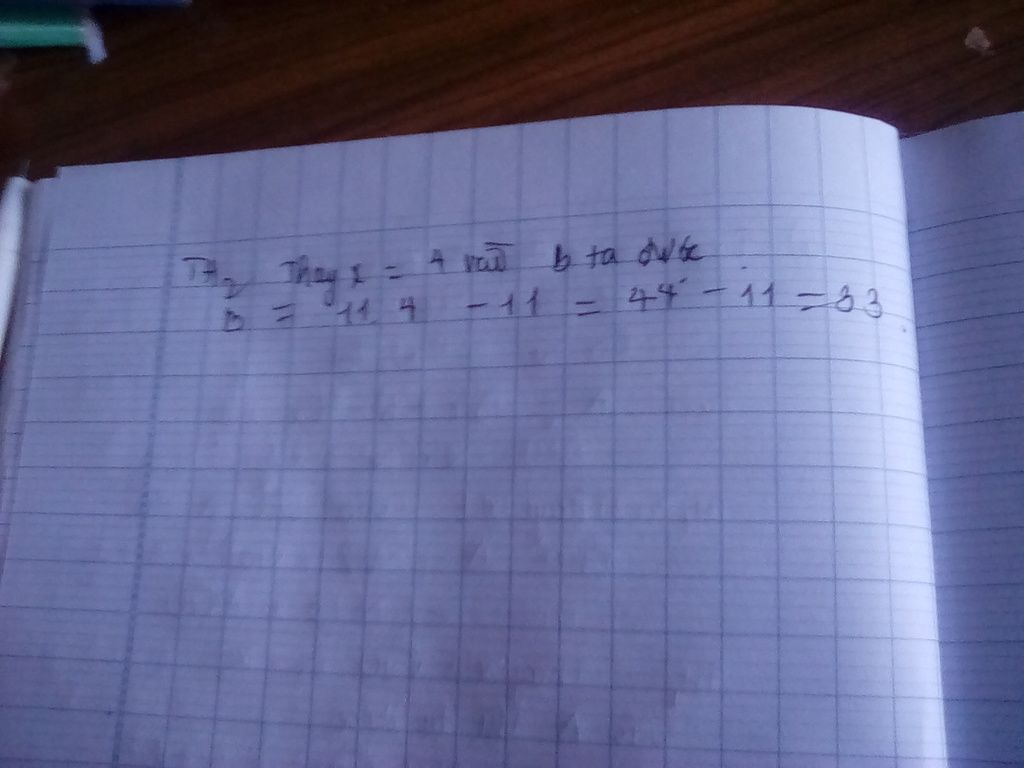 TH2 Thay x = 4 vào B ta được
B = 11.4 - 11 = 44 - 11 = 33.